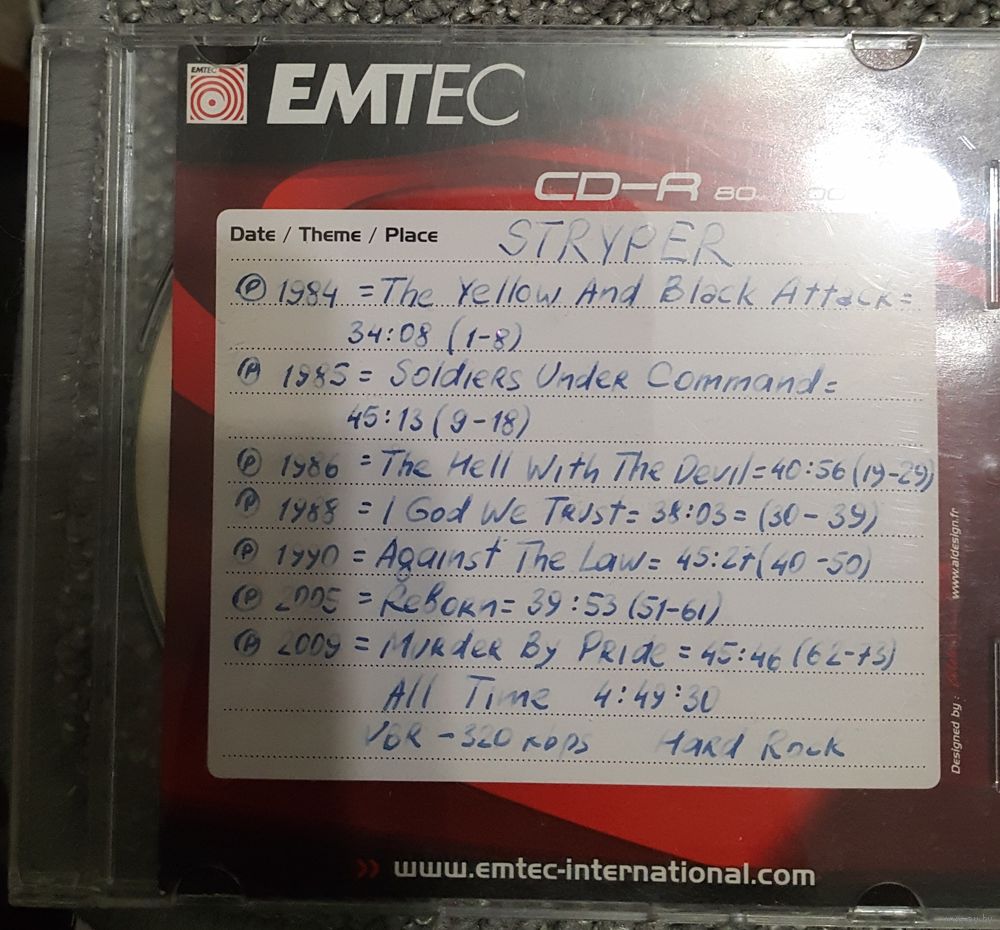 EMTEC
EMTEC
CD-R 80
Date / Theme / Place STRYPER
℗ 1984 = The Yellow And Black Attack =
34:08 (1-8)
℗ 1985 = Soldiers Under Command =
45:13 (9-18)
℗ 1986 = The Hell With The Devil = 40:56 (19-29)
℗ 1988 = I God We Trust = 38:03 = (30-39)
℗ 1990 = Against The Law = 45:27 (40-50)
℗ 2005 = Reborn = 39:53 (51-61)
℗ 2009 = Murder By Pride = 45:46 (62-73)
All Time 4:49:30
VBR - 320 kbps Hard Rock
www.emtec-international.com
Designed by :
www.aldesign.fr